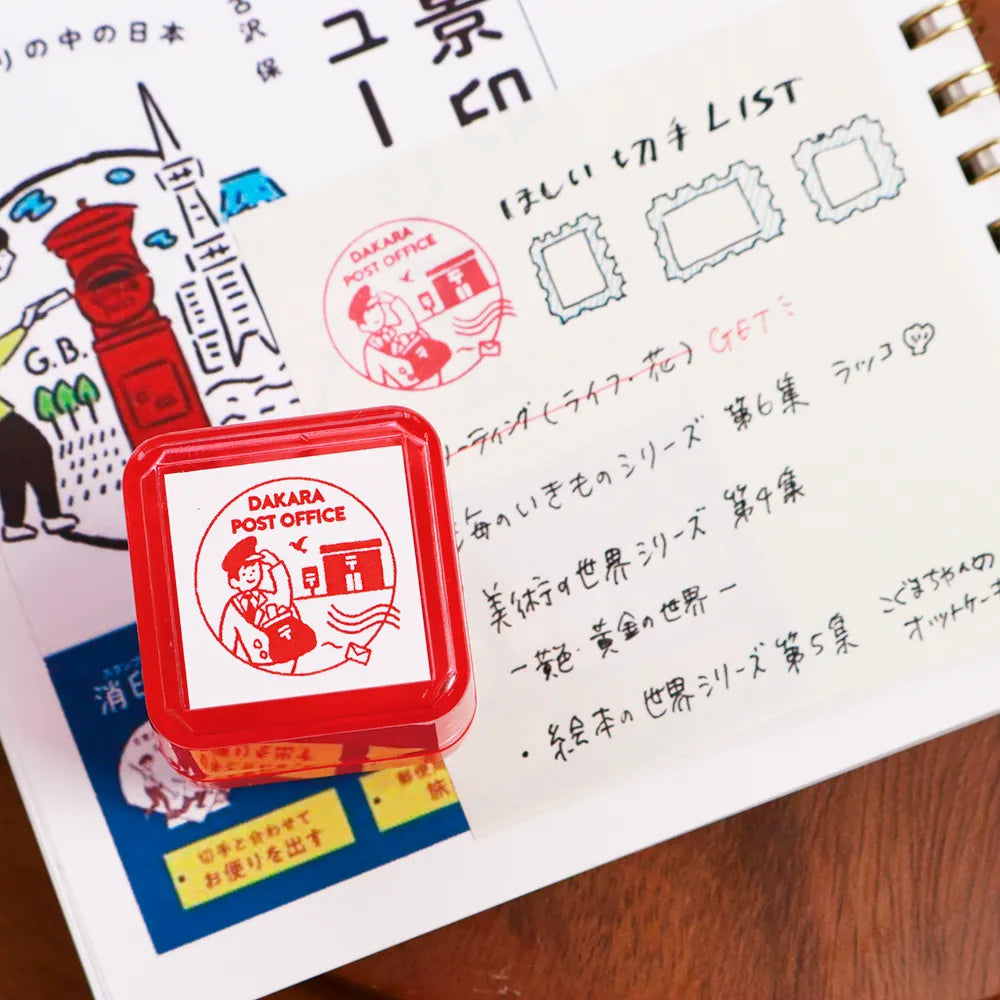 りの中の日本
古沢 保
景印
ユー
G.B.
ほしい切手LIST
DAKARA
POST OFFICE
ーティング(ライフ・花) GET
海のいきものシリーズ 第6集 ラッコ
美術の世界シリーズ 第4集
ー黄色・黄金の世界ー
・絵本の世界シリーズ 第5集 こぐまちゃんの
ホットケーキ
DAKARA
POST OFFICE
消印
切手と合わせて
お便りを出す
旅